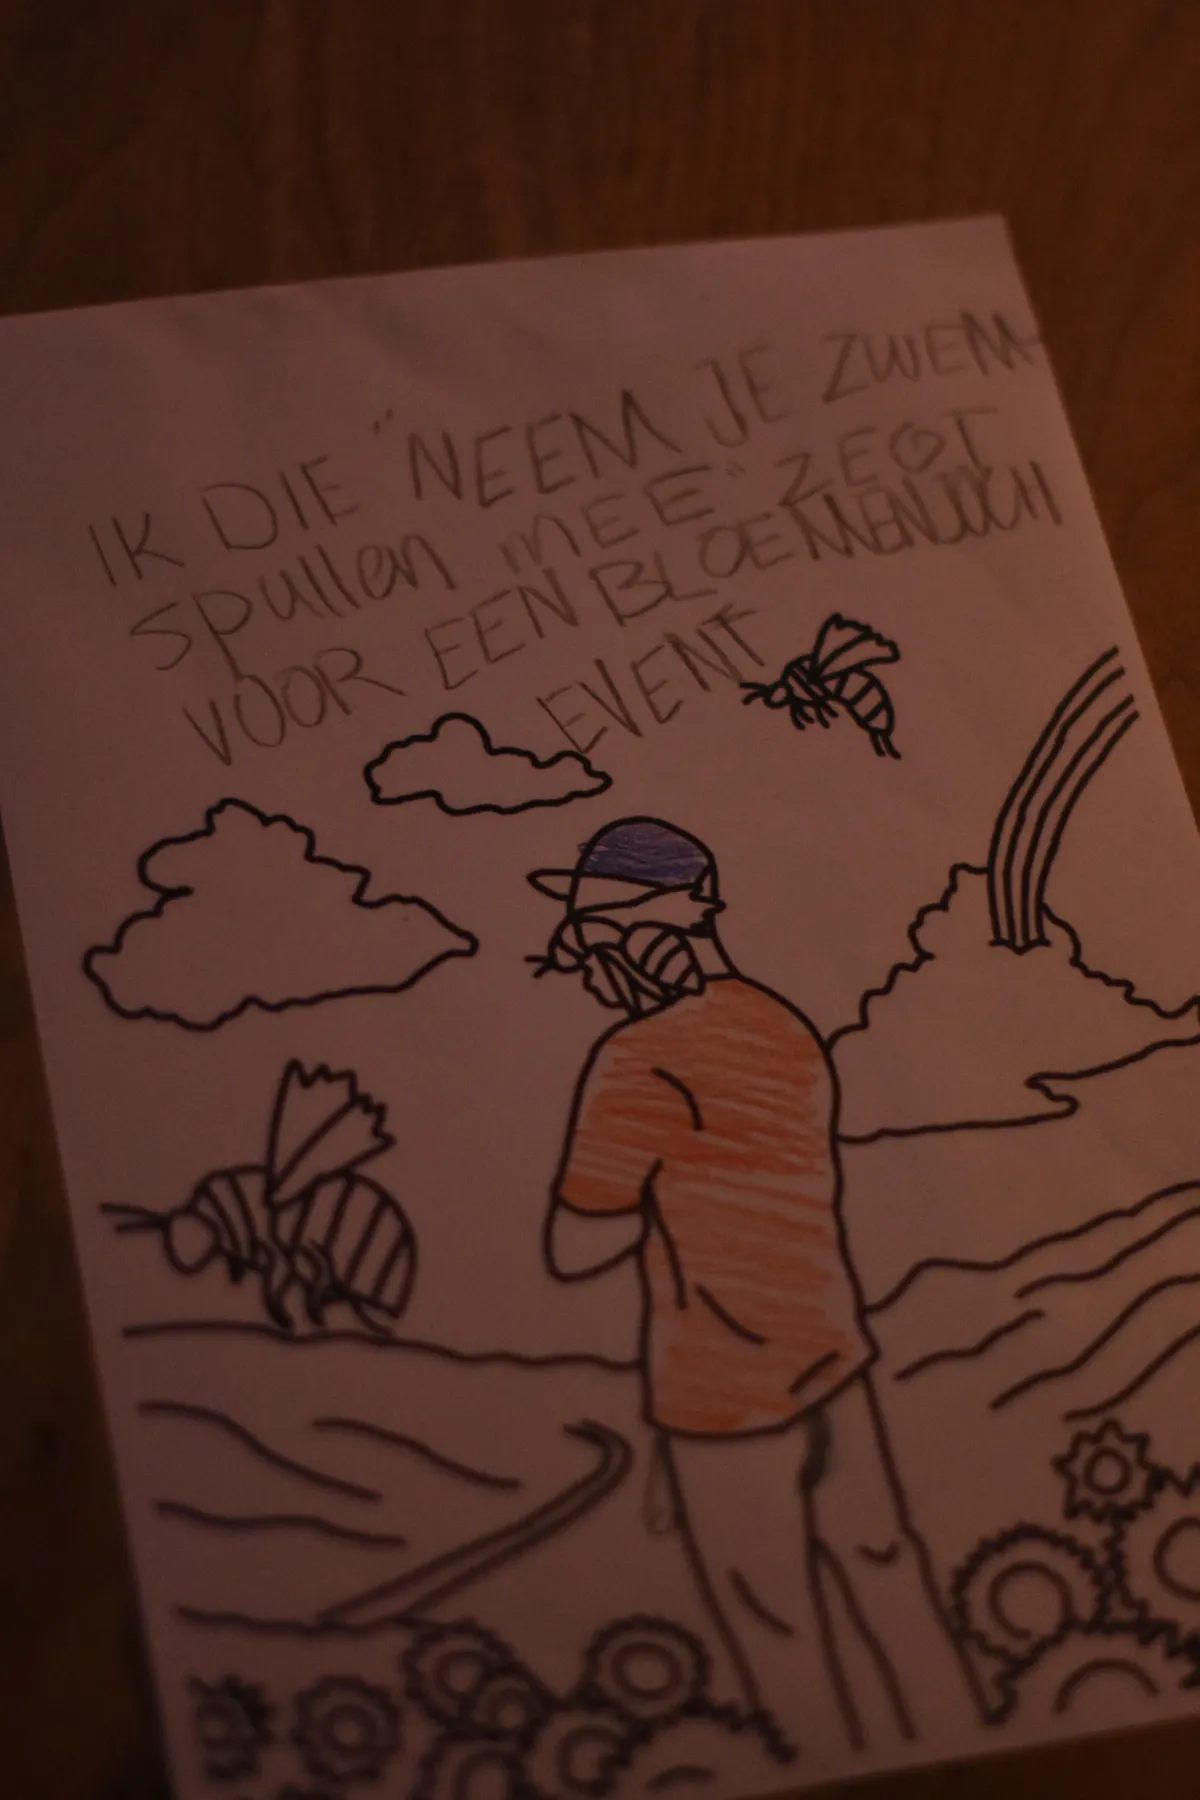 IK DIE "NEEM JE ZWEM-
spullen mEE" ZEGT
VOOR EEN
EVENT